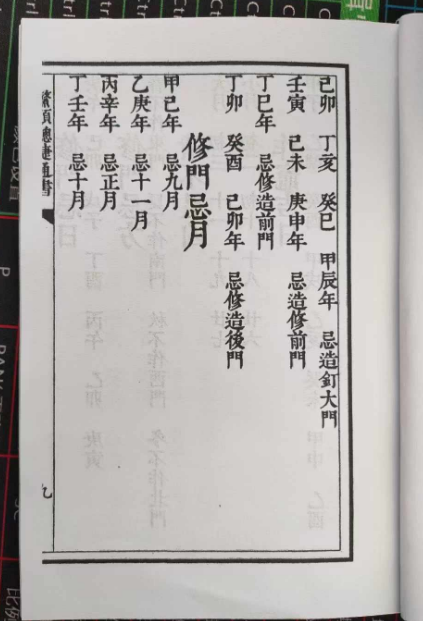 己卯 丁亥 癸巳 甲辰年 忌造釘大門
壬寅 己未 庚申年 忌造修前門
丁巳年 忌修造前門
丁卯 癸酉 己卯年 忌修造後門
修門忌月
甲己年 忌九月
乙庚年 忌十一月
丙辛年 忌正月
丁壬年 忌十月
鰲頭總捷通書
九